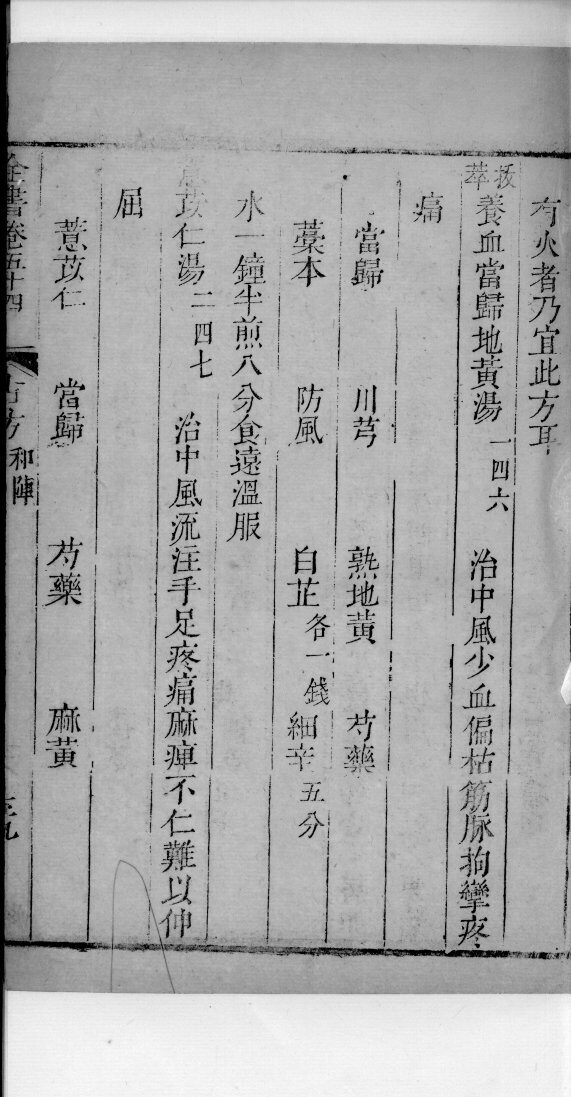 有火者乃宜此方耳
拔萃養血當歸地黃湯 一四六 治中風少血偏枯筋脉拘攣疼
痛
當歸 川芎 熟地黃 芍藥
藁本 防風 白芷各一錢 細辛五分
水一鐘半煎八分食遠溫服
薏苡仁湯 二四七 治中風流注手足疼痛麻痺不仁難以伸
屈
薏苡仁 當歸 芍藥 麻黃
全書卷五十四 古方和陣